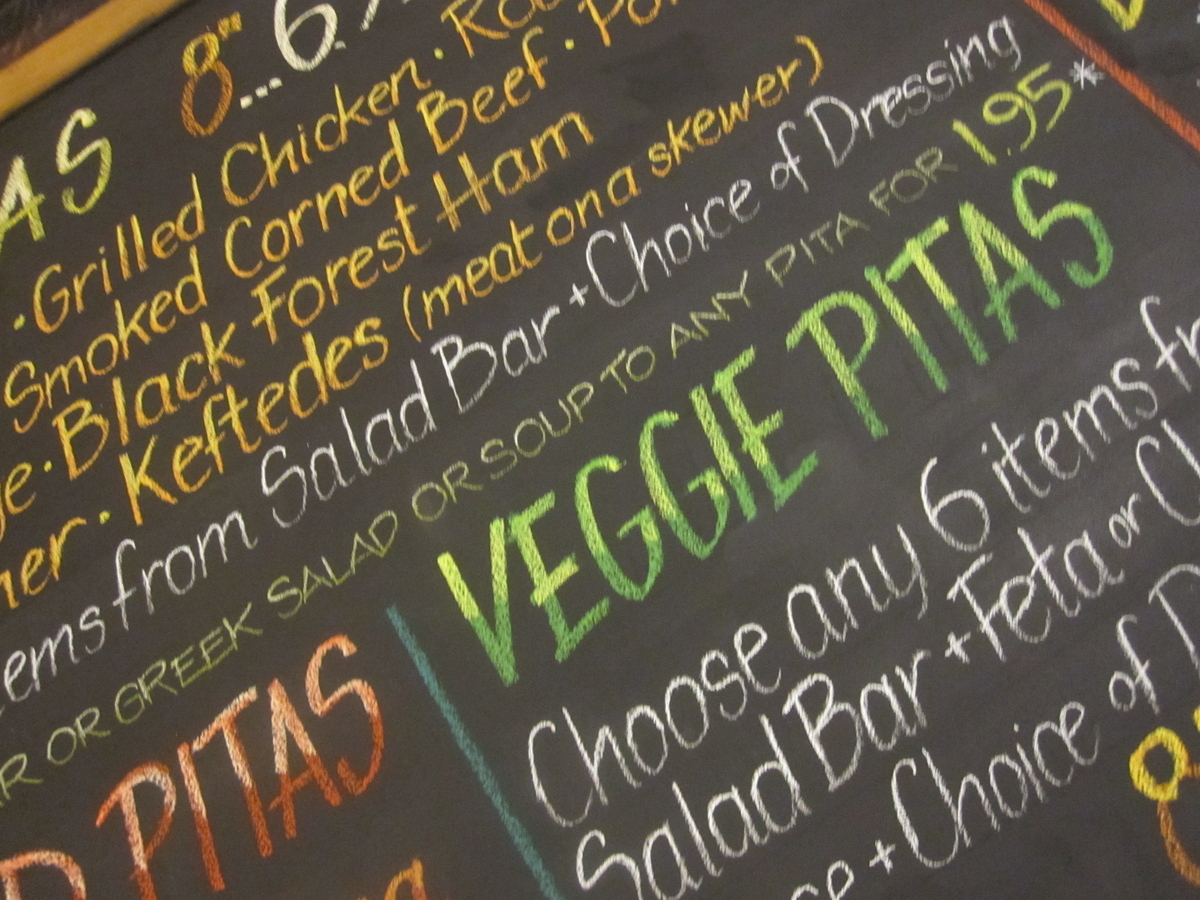 AS 8"...6
· Grilled Chicken ·
Smoked Corned Beef ·
· Black Forest Ham
· Keftedes (meat on a skewer)
from Salad Bar + Choice of Dressing
OR GREEK SALAD OR SOUP TO ANY PITA FOR 1.95*
VEGGIE PITAS
Choose any 6 items
Salad Bar + Feta or
+ Choice of
PITAS